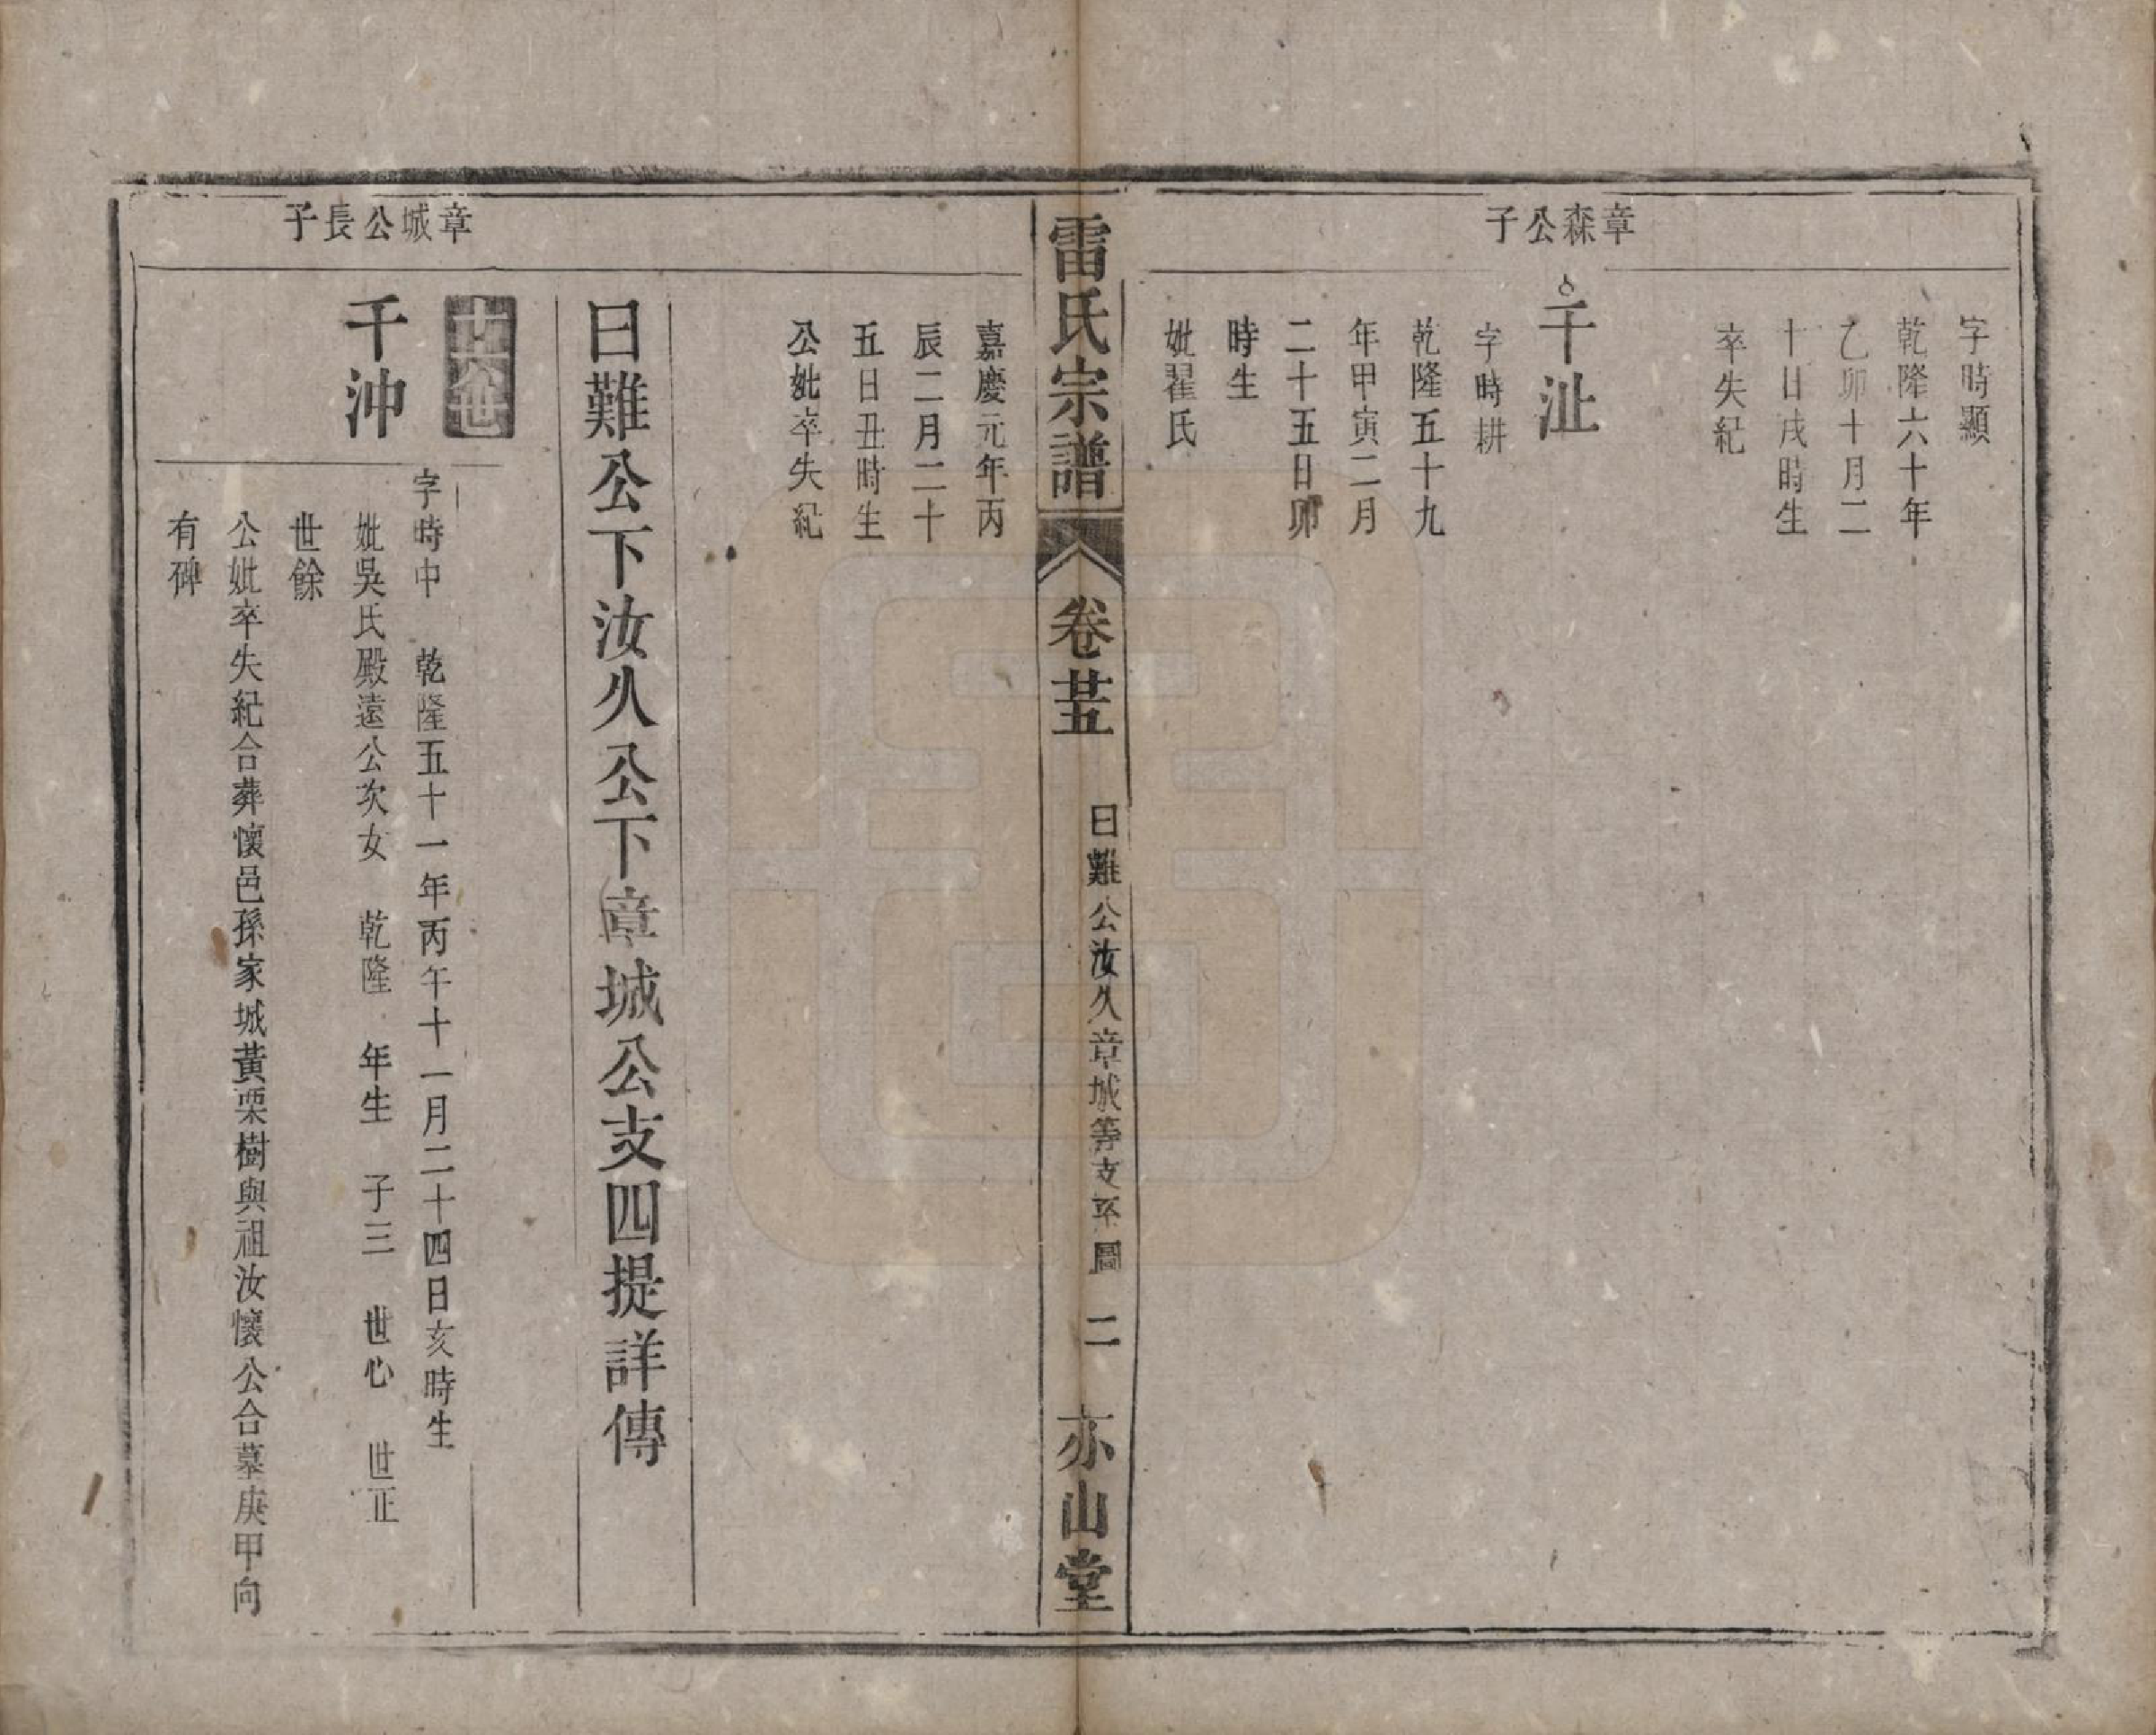 章森公子
字時顯
乾隆六十年
乙卯十月二
十日戌時生
卒失紀
千沚
字時耕
乾隆五十九
年甲寅二月
二十五日卯
時生
妣翟氏
雷氏宗譜
卷廿五
曰難公汝久章城等支平圖
二
亦山堂
嘉慶元年丙
辰二月二十
五日丑時生
公妣卒失紀
曰難公下汝久公下章城公支四提詳傳
章城公長子
十六世
千沖
字時中 乾隆五十一年丙午十一月二十四日亥時生
妣吳氏殿遠公次女 乾隆 年生 子三 世心 世正
世餘
公妣卒失紀合葬懷邑孫家城黃栗樹與祖汝懷公合墓庚甲向
有碑